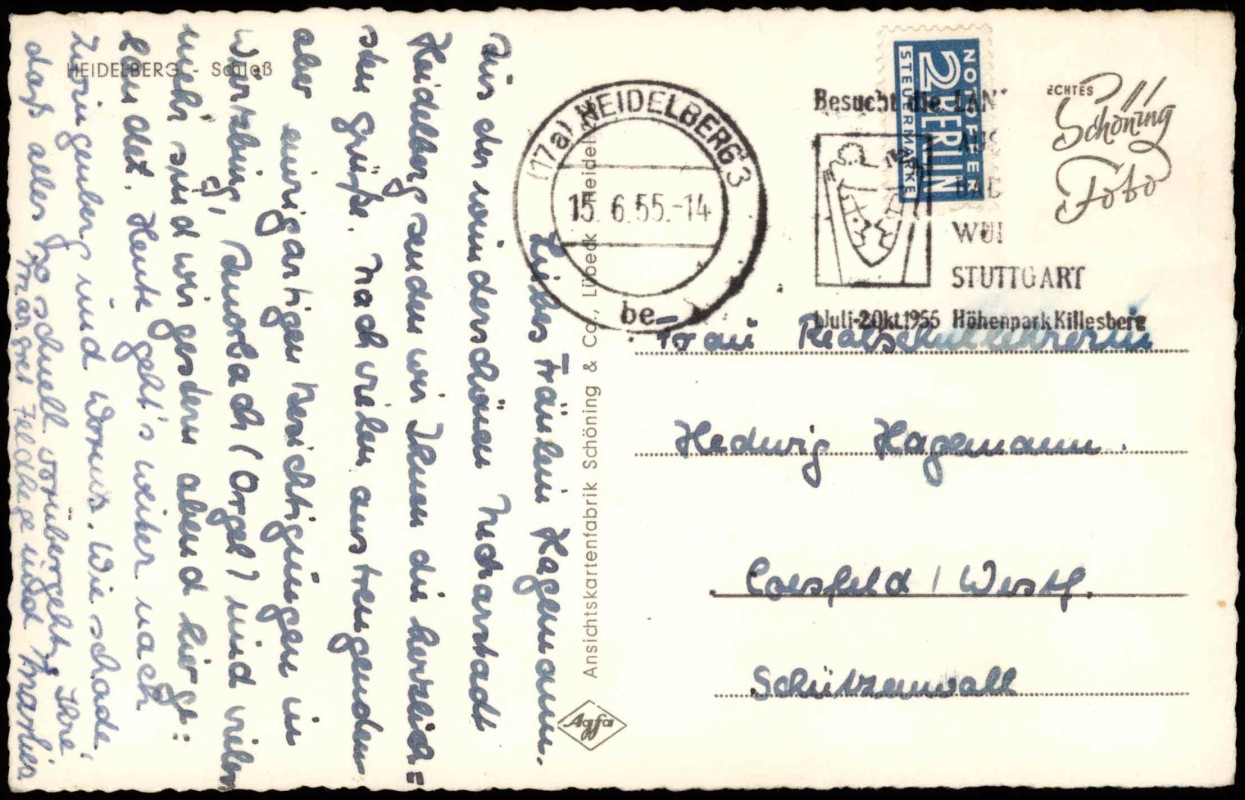 HEIDELBERG - Schloß
Liebes Fräulein Hagemann.
Aus der wunderschönen Neckarstadt
Heidelberg senden wir Ihnen die herzlich=
sten Grüße. Nach vielen anstrengenden
aber einzigartigen Besichtigungen in
Würzburg, Amorbach (Orgel!) und vielen
mehr sind wir gestern abend hier ge=
landet. Heute geht's weiter nach
Zwingenberg und Worms. Wie schade
daß alles so schnell vorübergeht, Ihre
Feldhege und Marlies
Ansichtskartenfabrik Schöning & Co., Lübeck
Agfa
(17a) HEIDELBERG 3
15. 6.55.-14
be
Besucht die LAN
WÜ
STUTTGART
1.Juli-2.Okt.1955 Höhenpark Killesberg
NOTOPFER
2 BERLIN
STEUERMARKE
ECHTES
Schöning
Foto
Frau Realschullehrerin
Hedwig Hagemann.
Coesfeld / Westf.
Schützenwall